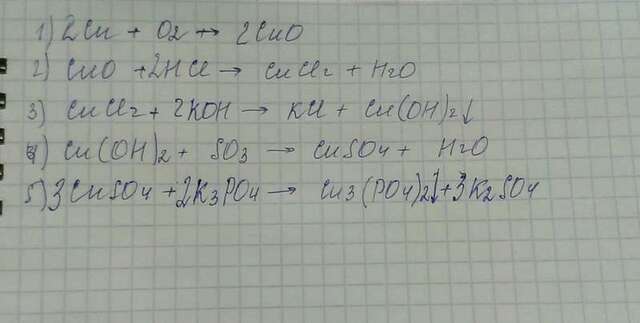 1) 2Cu + O2 → 2CuO
2) CuO + 2HCl → CuCl2 + H2O
3) CuCl2 + 2KOH → KCl + Cu(OH)2↓
4) Cu(OH)2 + SO3 → CuSO4 + H2O
5) 3CuSO4 + 2K3PO4 → Cu3(PO4)2↓ + 3K2SO4